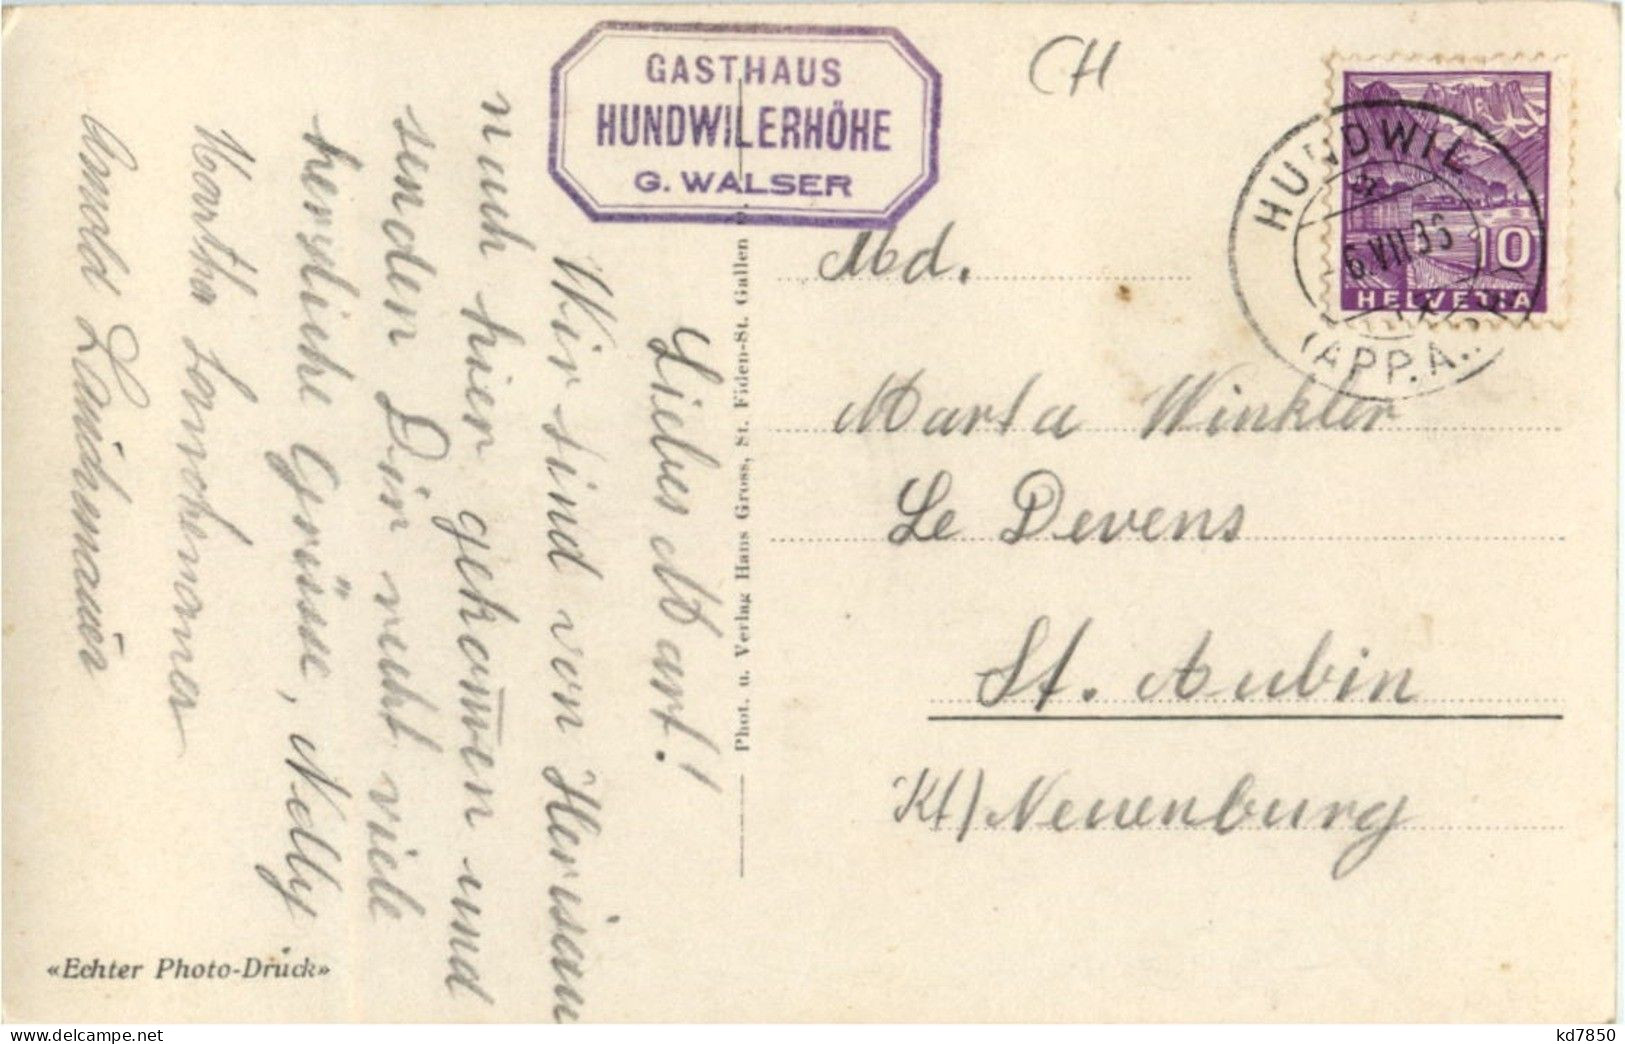 GASTHAUS
HUNDWILERHÖHE
G. WALSER
CH
HUNDWIL
6.VII.36
(APP.A.
10
HELVETIA
Liebes Marti!
Wir sind von Herisau
nach hier gekom̅en und
senden Dir recht viele
herzliche Grüsse, Nelly
Martha
Arnold
Phot. u. Verlag Hans Gross, St. Fiden-St. Gallen
Md.
Marta Winkler
Le Devens
St. Aubin
Kt) Neuenburg
«Echter Photo-Druck»
kd7850